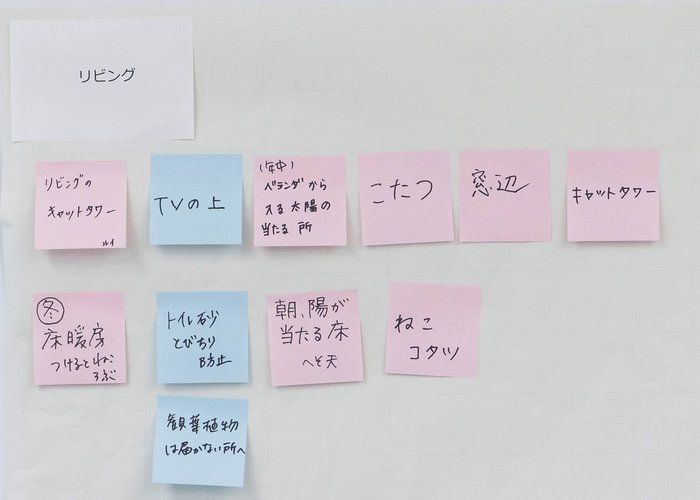 リビング
リビングの
キャットタワー
ルイ
TVの上
(年中)
ベランダから
入る太陽の
当たる所
こたつ
窓辺
キャットタワー
冬
床暖房
つけるとねころぶ
トイレ砂
とびちり
防止
朝、陽が
当たる床
へそ天
ねこ
コタツ
観葉植物
は届かない所へ